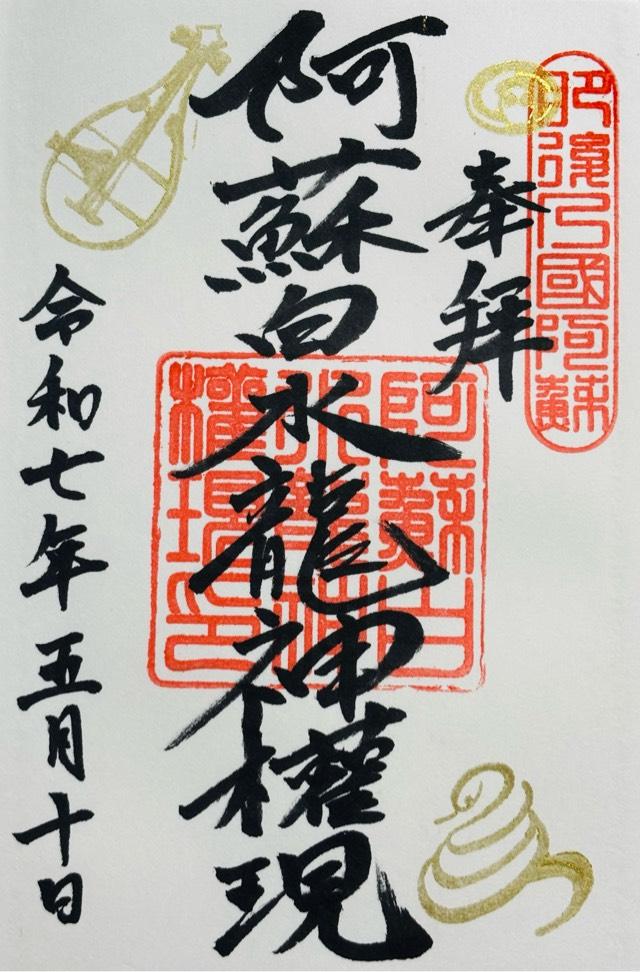 肥後乃國阿蘇
奉拜
阿蘇白水龍神權現
阿蘇白
水龍神
權現印
令和七年五月十日